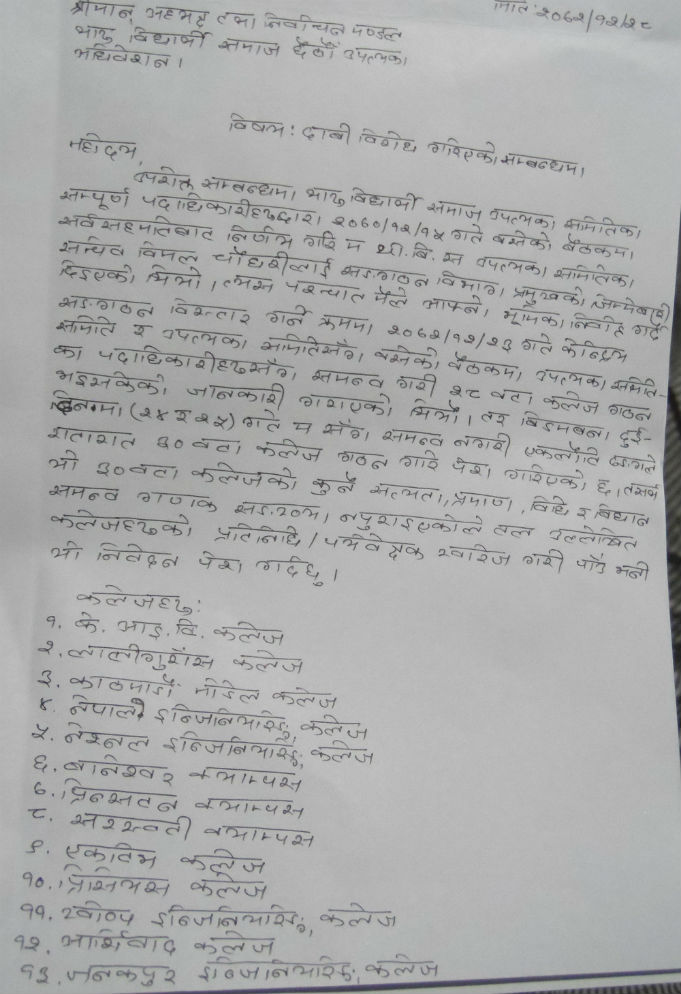 मिति: २०७२/१२/२८
श्रीमान् अध्यक्ष तथा निर्वाचन मण्डल
थारु विद्यार्थी समाज छैठौं उपत्यका
अधिवेशन ।
विषय: दाबी विरोध गरिएको सम्बन्धमा ।
महोदय,
उपरोक्त सम्बन्धमा थारु विद्यार्थी समाज उपत्यका समितिका
सम्पूर्ण पदाधिकारीहरुद्वारा २०७०/१२/१५ गते बसेको बैठकमा
सर्वसहमतिबाट निर्णय गरि म था. वि. स उपत्यका समितिका
सचिव विमल चौधरीलाई सङगठन विभाग प्रमुखको जिम्मेवारी
दिइएको थियो । त्यस पश्चात मैले आफ्नो भूमिका निर्वाह गर्दै
सङगठन विस्तार गर्ने क्रममा २०७२/१२/२३ गते केन्द्रिय
समिति र उपत्यका समितिसँग बसेको बैठकमा उपत्यका समिति-
का पदाधिकारीहरुसँग समन्व गरी २८ वटा कलेज गठन
भइसकेको जानकारी गराएको थिएँ । तर बिडम्बना दुई-
दिनमा (२४ र २५) गते म सँग समन्व नगरी एक्लौटि ढङगले
रातारात ३० वटा कलेज गठन गरि पेश गरिएको छ । तसर्थ
यो ३० वटा कलेजको कुनै सत्यता, प्रमाण, विधि र विधान
समन्व गणक सङख्या नपुराइएकोले तल उल्लेखित
कलेजहरुको प्रतिनिधि / पर्यवेक्षक खारेज गरी पाउँ भनी
यो निवेदन पेश गर्दछु ।
कलेजहरु:
१. के. आइ. वि. कलेज
२. लालीगुराँस कलेज
३. काठमाडौं मोडेल कलेज
४. नेपाल इन्जिनियरिङ्ग कलेज
५. नेश्नल इन्जिनियरिङ्ग कलेज
६. बानेश्वर क्याम्पस
७. प्रिन्सटन क्याम्पस
८. सरस्वती क्याम्पस
९. एकाटिम कलेज
१०. प्रिसियस कलेज
११. ख्वोप इन्जिनियरिङ्ग कलेज
१२. आर्शिवाद कलेज
१३. जनकपुर इन्जिनियरिङ्ग कलेज